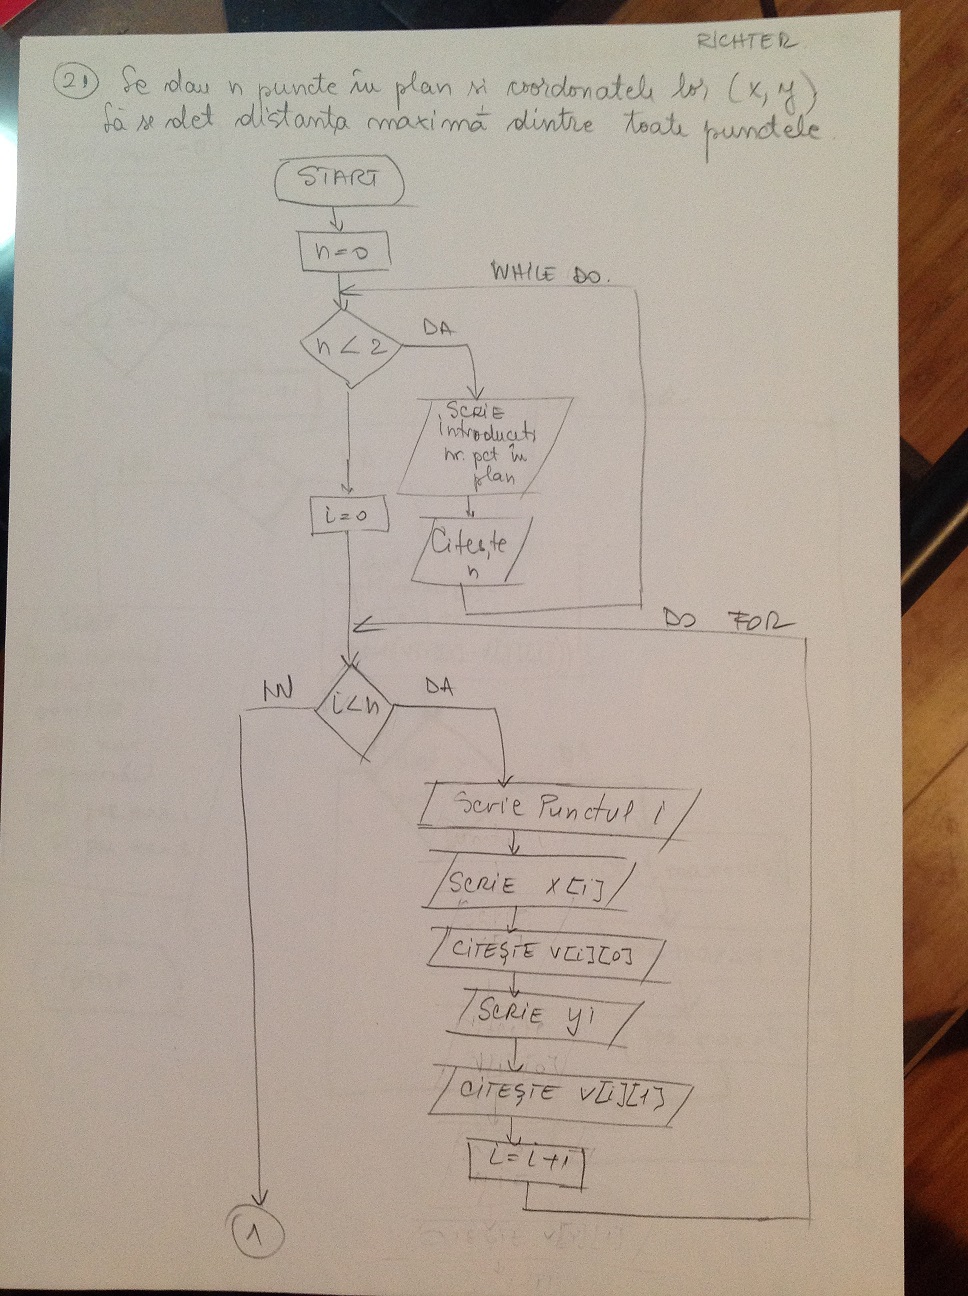 RICHTER
21 Se dau n puncte în plan si coordonatele lor (x, y)
Să se det distanța maximă dintre toate punctele.
START
n=0
WHILE DO.
n < 2
DA
SCRIE
introduceti
nr. pct în
plan
i=0
Citește
n
DO FOR
NU
i<n
DA
Scrie Punctul i
SCRIE x[i]
CITEȘTE V[i][0]
SCRIE yi
CITEȘTE V[i][1]
i=i+1
1